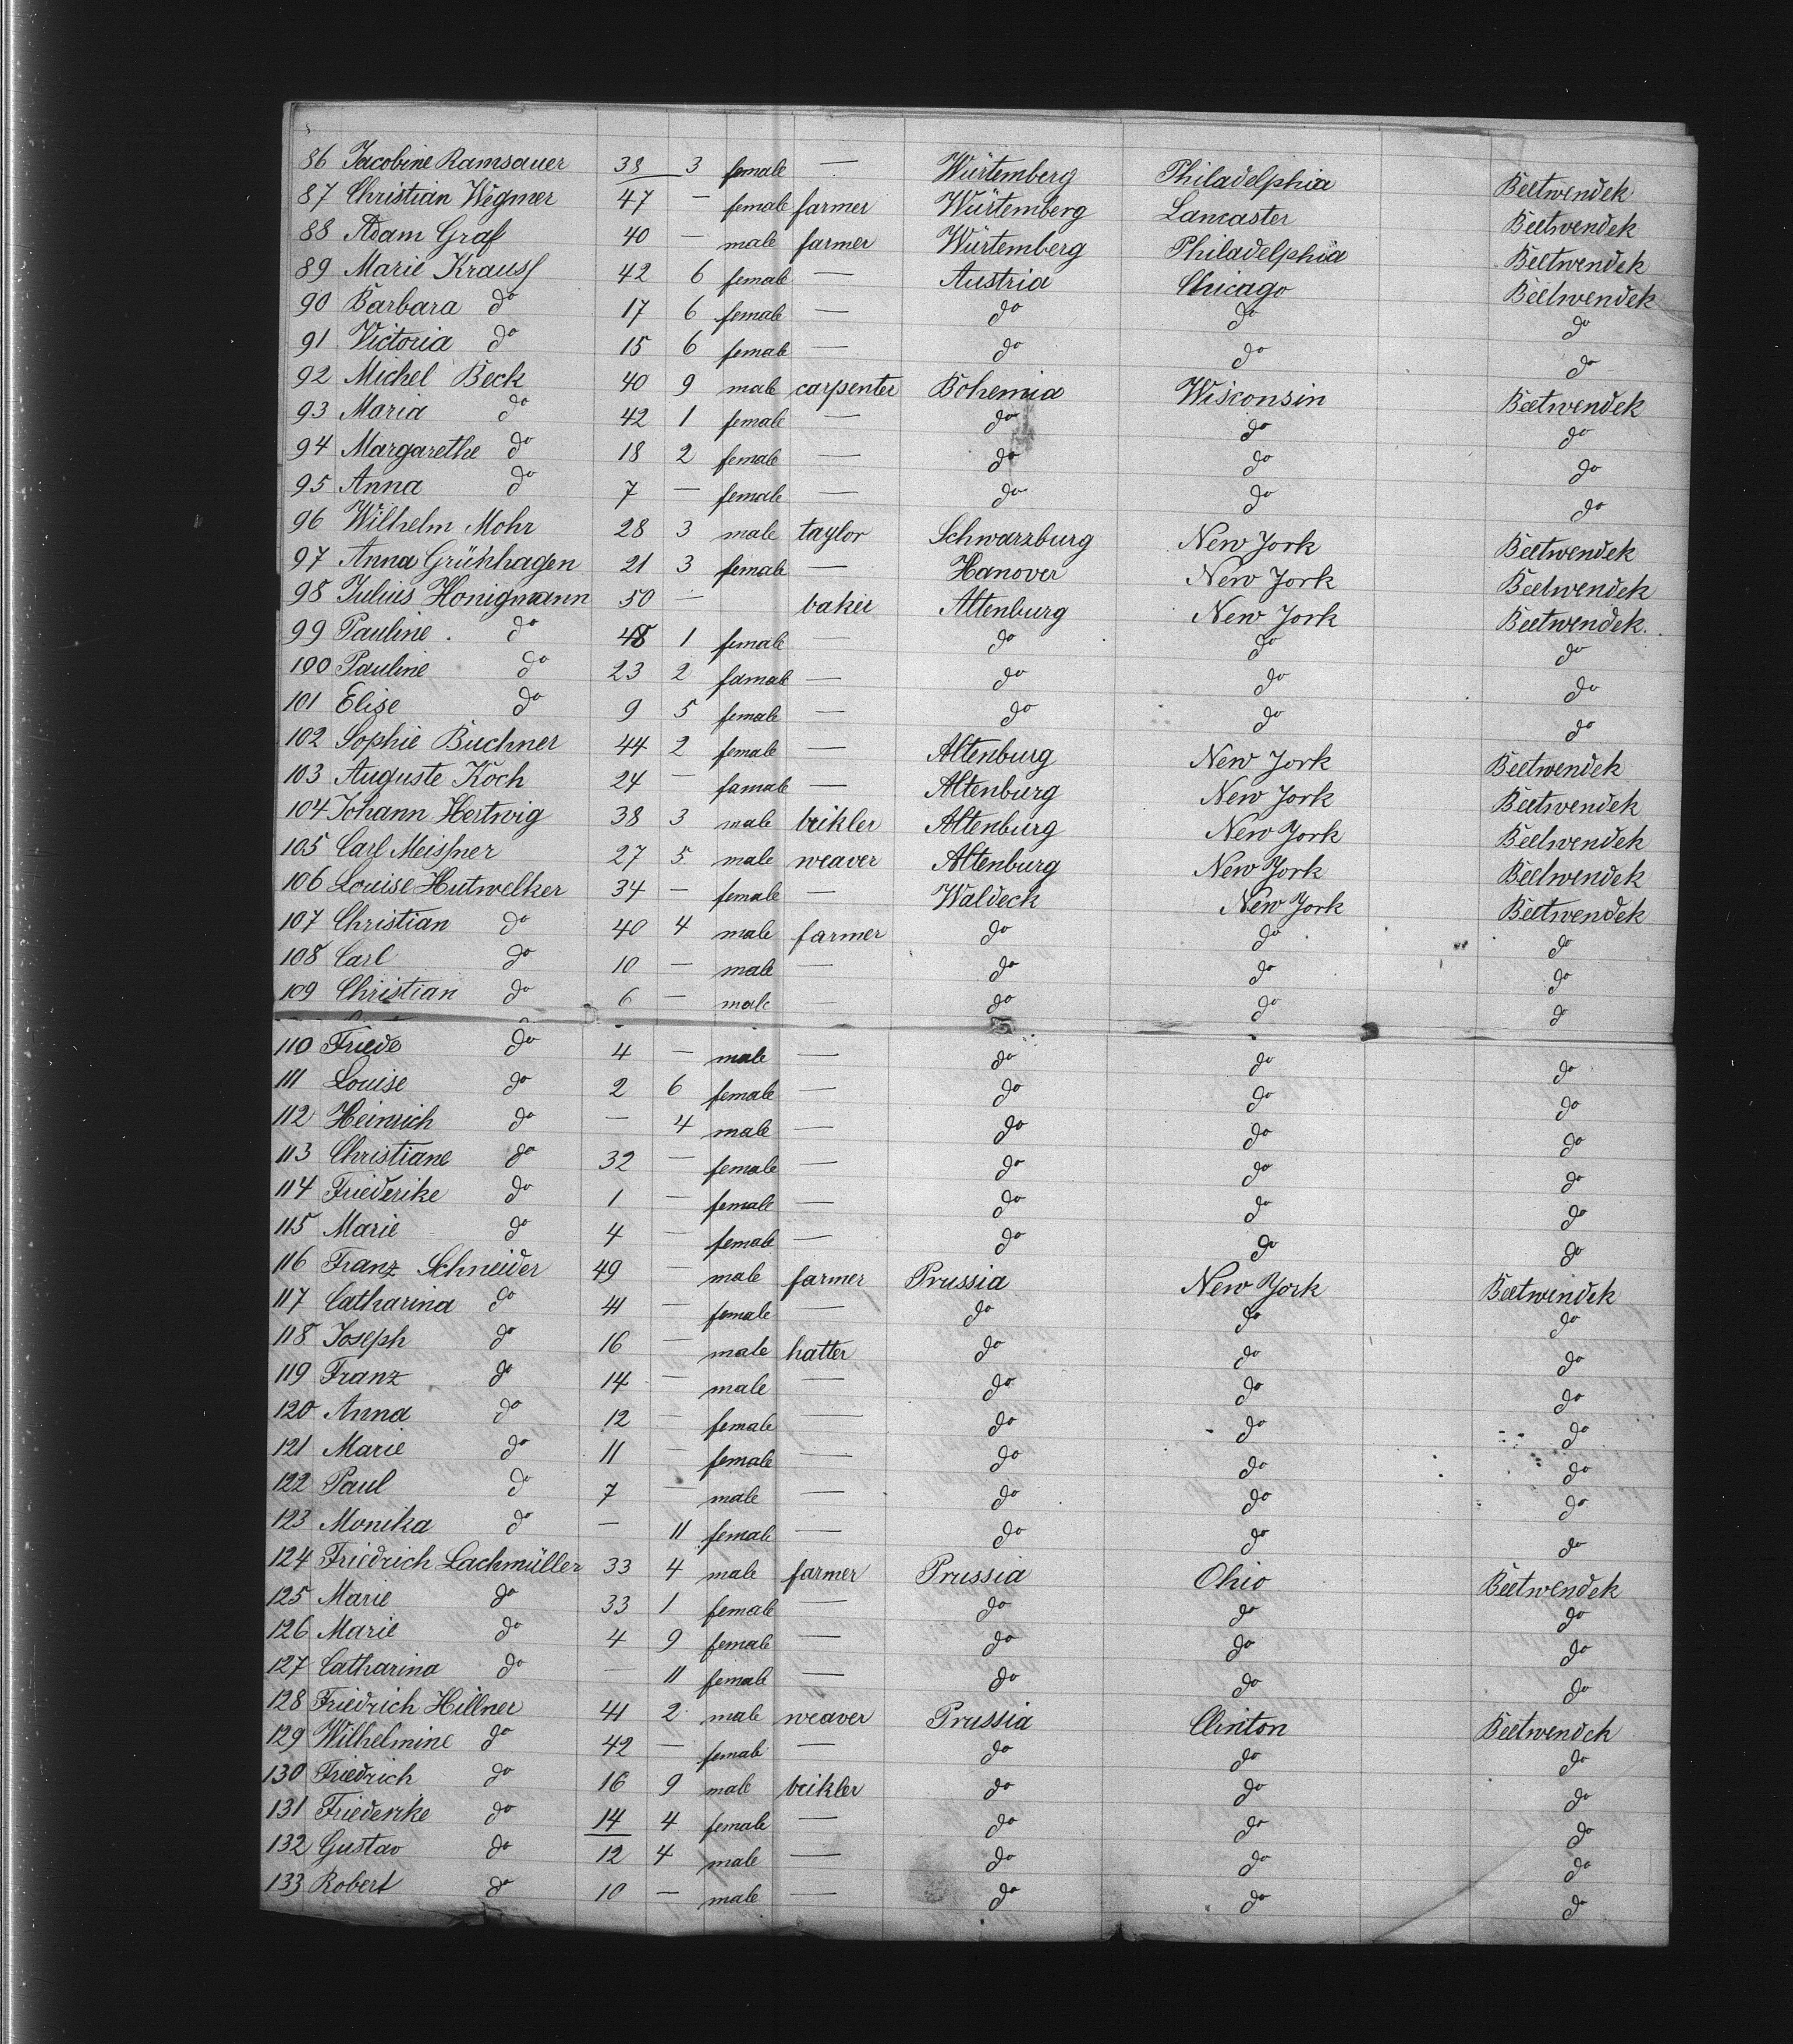 86 Jacobine Ramsauer 38 3 female — Würtemberg Philadelphia Beetwendek
87 Christian Wegmer 47 — female farmer Würtemberg Lancaster Beetwendek
88 Adam Graf 40 — male farmer Würtemberg Philadelphia Beetwendek
89 Marie Krauss 42 6 female — Austria Chicago Beetwendek
90 Barbara do 17 6 female — do do do
91 Victoria do 15 6 female — do do do
92 Michel Beck 40 9 male carpenter Bohemia Wisconsin Beetwendek
93 Maria do 42 1 female — do do do
94 Margarethe do 18 2 female — do do do
95 Anna do 7 — female — do do do
96 Wilhelm Mohr 28 3 male taylor Schwarzburg New York Beetwendek
97 Anna Grühhagen 21 3 female — Hanover New York Beetwendek
98 Julius Honigmann 50 — baker Altenburg New York Beetwendek.
99 Pauline. do 48 1 female — do do do
100 Pauline do 23 2 famale — do do do
101 Elise do 9 5 female — do do do
102 Sophie Buchner 44 2 female — Altenburg New York Beetwendek
103 Auguste Koch 24 — famale — Altenburg New York Beetwendek
104 Johann Hertwig 38 3 male brikler Altenburg New York Beetwendek
105 Carl Meissner 27 5 male weaver Altenburg New York Beetwendek
106 Louise Hutwelker 34 — female — Waldeck New York Beetwendek
107 Christian do 40 4 male farmer do do do
108 Carl do 10 — male — do do do
109 Christian do 6 — male — do do do
110 Friede do 4 — male — do do do
111 Louise do 2 6 female — do do do
112 Heinrich do — 4 male — do do do
113 Christiane do 32 — female — do do do
114 Friederike do 1 — female — do do do
115 Marie do 4 — female — do do do
116 Franz Schneider 49 — male farmer Prussia New York Beetwendek
117 Catharina do 41 — female — do do do
118 Joseph do 16 — male hatter do do do
119 Franz do 14 — male — do do do
120 Anna do 12 — female — do do do
121 Marie do 11 — female — do do do
122 Paul do 7 — male — do do do
123 Monika do — 11 female — do do do
124 Friedrich Lachmüller 33 4 male farmer Prussia Ohio Beetwendek
125 Marie do 33 1 female — do do do
126 Marie do 4 9 female — do do do
127 Catharina do — 11 female — do do do
128 Friedrich Hillner 41 2 male weaver Prussia Clinton Beetwendek
129 Wilhelmine do 42 — female — do do do
130 Friedrich do 16 9 male brikler do do do
131 Friederike do 14 4 female — do do do
132 Gustav do 12 4 male — do do do
133 Robert do 10 — male — do do do